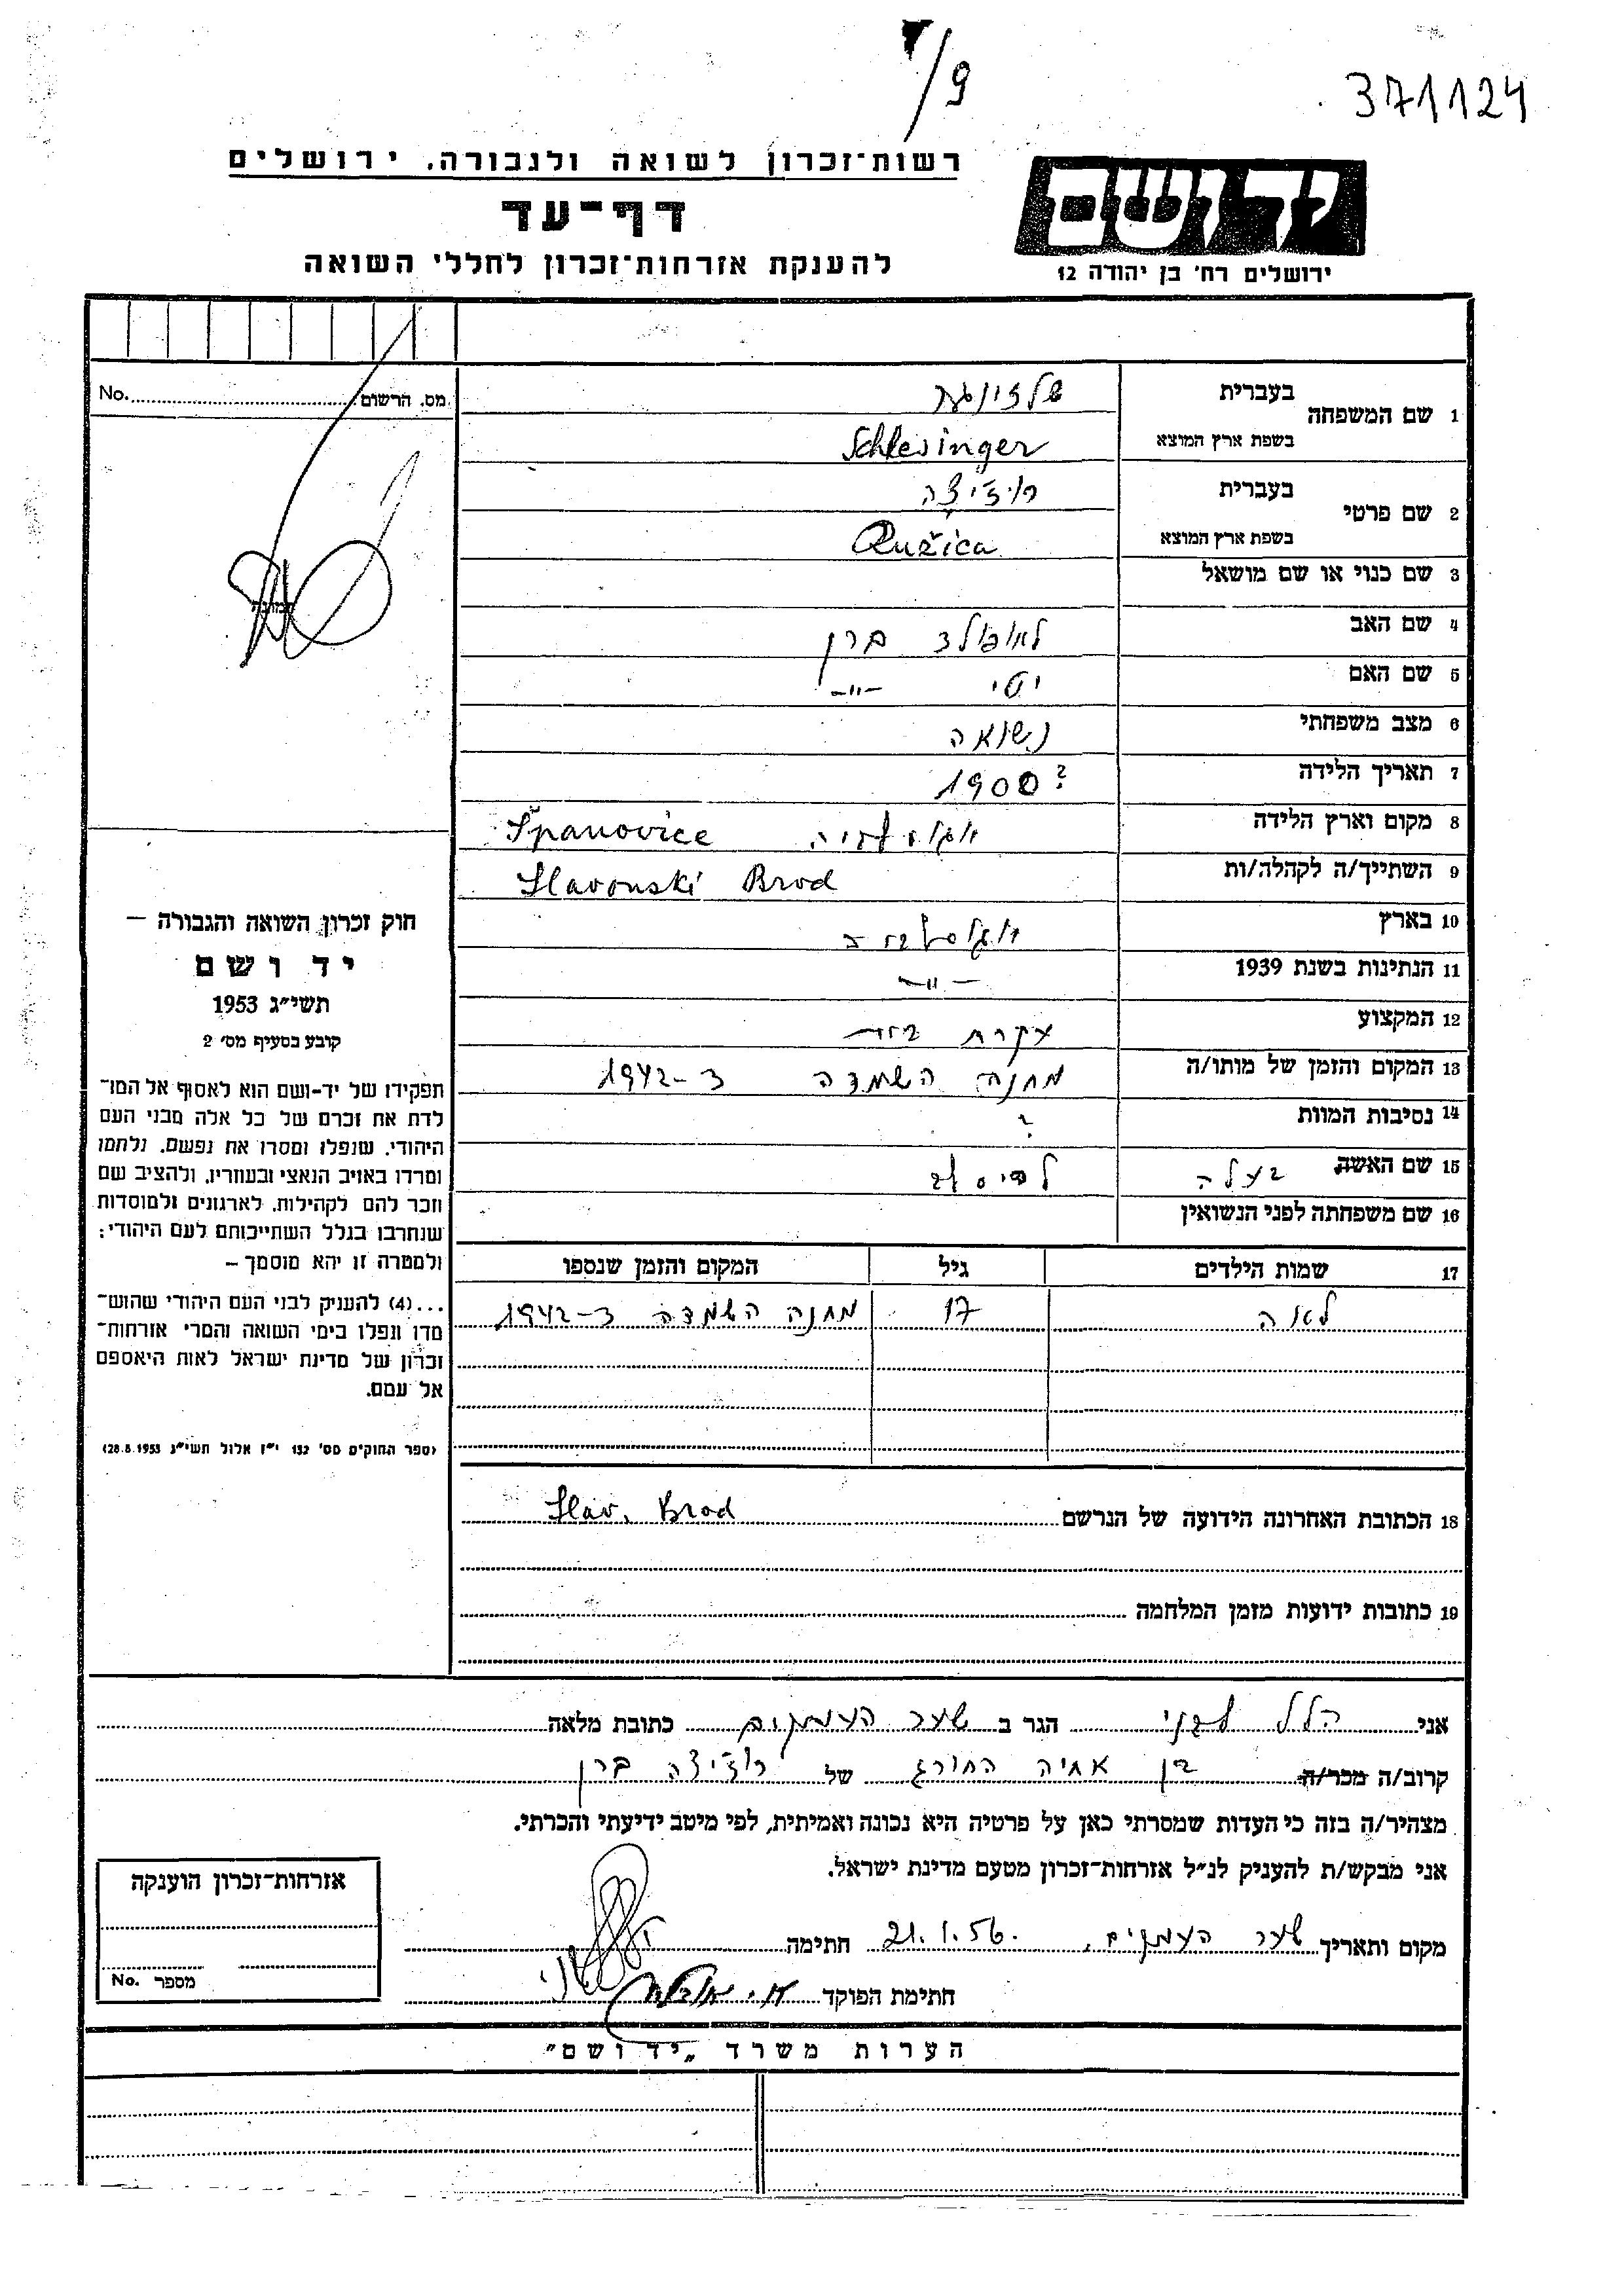 371124
/9
רשות־זכרון לשואה ולגבורה. ירושלים
דף־עד
להענקת אזרחות־זכרון לחללי השואה
ידושם
ירושלים רח' בן יהודה 12
מס. הרשום No.
בעברית שלזינגר
1 שם המשפחה
בשפת ארץ המוצא Schlesinger
בעברית רוז'יצה
2 שם פרטי
בשפת ארץ המוצא Ružica
3 שם כנוי או שם מושאל
4 שם האב לאופולד ברן
5 שם האם יטי -״-
6 מצב משפחתי נשואה
7 תאריך הלידה 1900?
8 מקום וארץ הלידה יוגוסלביה Španovice
9 השתייך/ה לקהלה/ות Slavonski Brod
10 בארץ יוגוסלביה
11 הנתינות בשנת 1939 -״-
12 המקצוע עקרת בית
13 המקום והזמן של מותו/ה מחנה השמדה 1942-3
14 נסיבות המוות ?
15 שם האשה בעלה
16 שם משפחתה לפני הנשואין
17 שמות הילדים גיל המקום והזמן שנספו
לאה 17 מחנה השמדה 1942-3
18 הכתובת האחרונה הידועה של הנרשם Slav. Brod
19 כתובות ידועות מזמן המלחמה
חוק זכרון השואה והגבורה –
יד ושם
תשי״ג 1953
קובע בסעיף מס' 2
תפקידו של יד-ושם הוא לאסוף אל המו־
לדת את זכרם של כל אלה מבני העם
היהודי, שנפלו ומסרו את נפשם, נלחמו
ומרדו באויב הנאצי ובעוזריו, ולהציב שם
וזכר להם לקהילות, לארגונים ולמוסדות
שנחרבו בגלל השתייכותם לעם היהודי;
ולמטרה זו יהא מוסמך –
...(4) להעניק לבני העם היהודי שהוש־
מדו ונפלו בימי השואה והמרי אזרחות־
זכרון של מדינת ישראל לאות היאספם
אל עמם.
(ספר החוקים מס' 132 י״ז אלול תשי״ג 28.8.1953)
אני הלל הגר ב שער העמקים כתובת מלאה
קרוב/ה מכר/ה בן אחיה החורג של רוז'יצה ברן
מצהיר/ה בזה כי העדות שמסרתי כאן על פרטיה היא נכונה ואמיתית, לפי מיטב ידיעתי והכרתי.
אני מבקש/ת להעניק לנ״ל אזרחות־זכרון מטעם מדינת ישראל.
מקום ותאריך שער העמקים, 21.1.56. חתימה
חתימת הפוקד
אזרחות־זכרון הוענקה
מספר No.
הערות משרד „יד ושם״